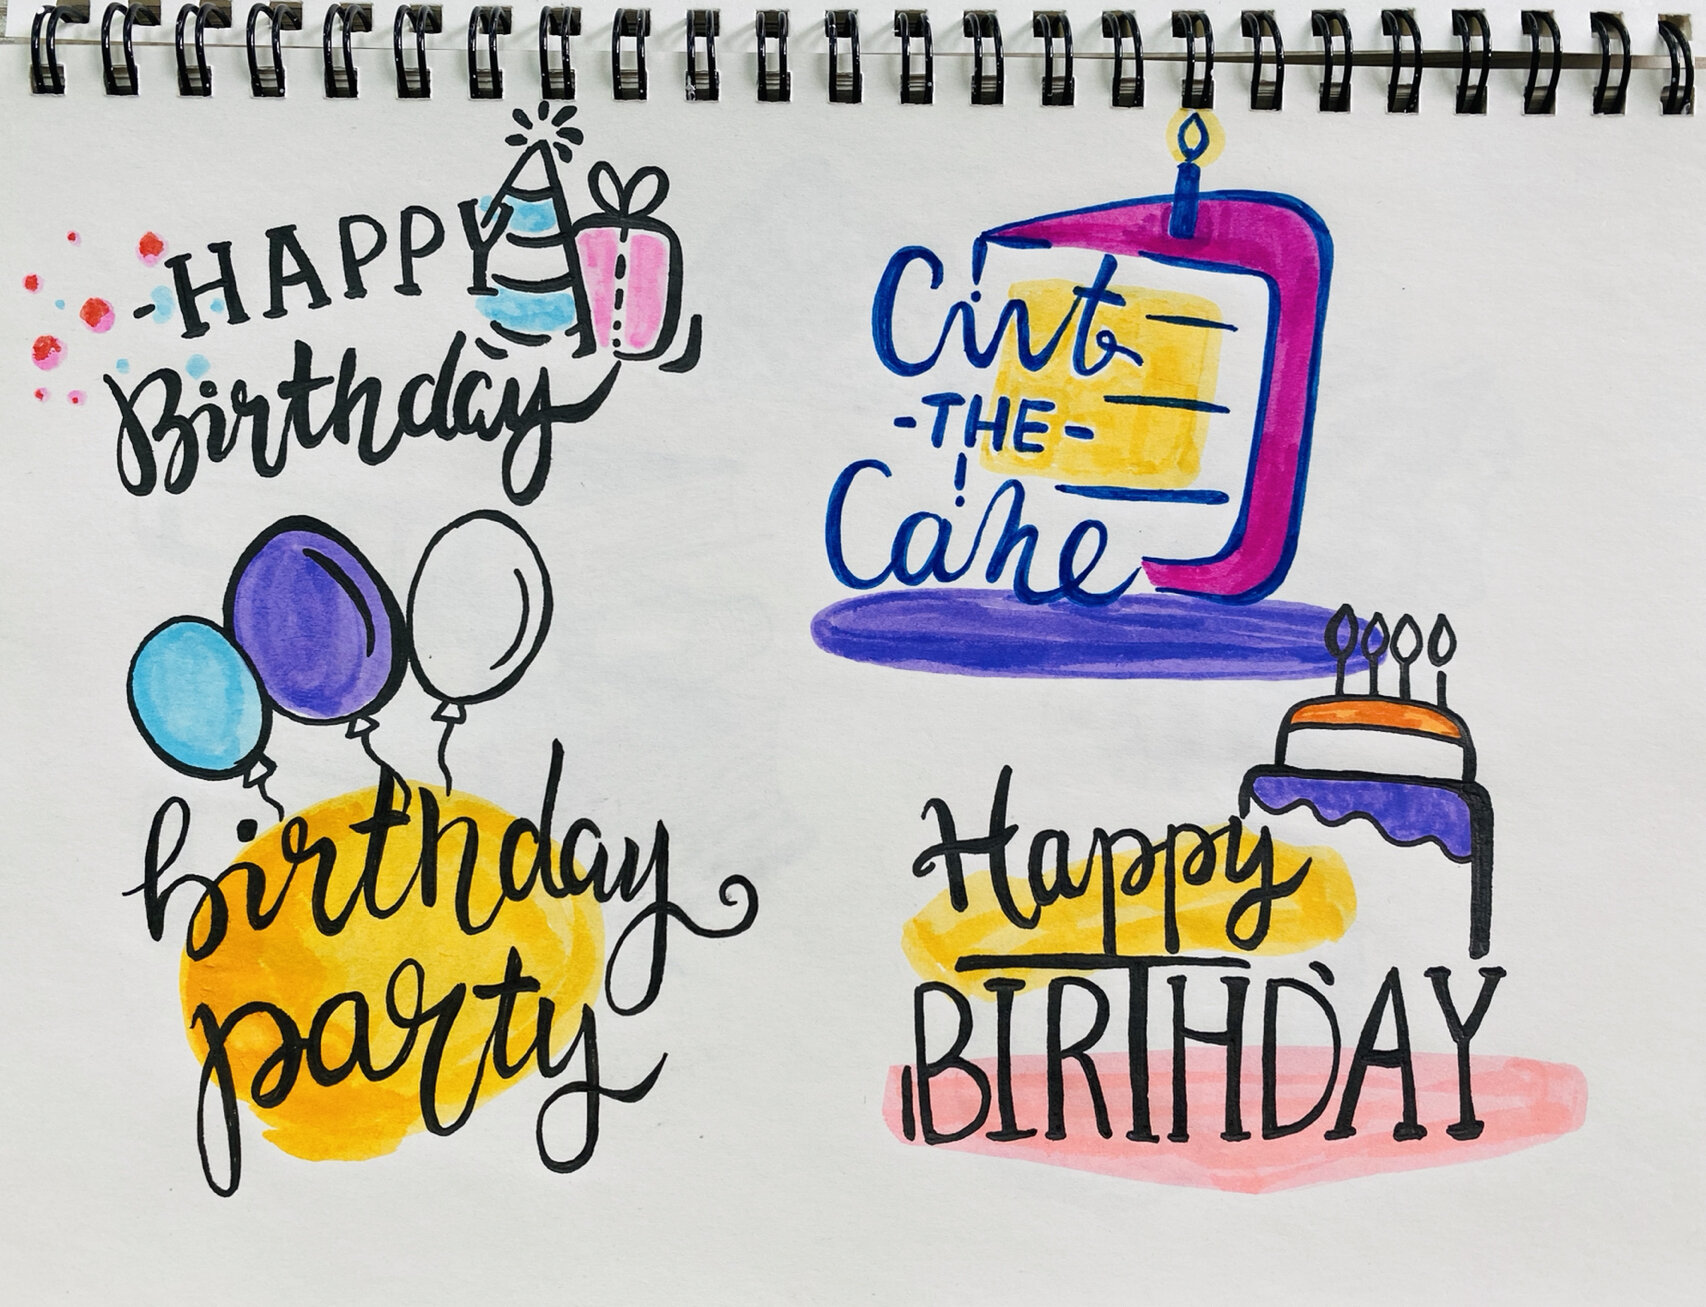 -HAPPY
Birthday
Cut
-THE-
Cake
birthday
party
Happy
BIRTHDAY